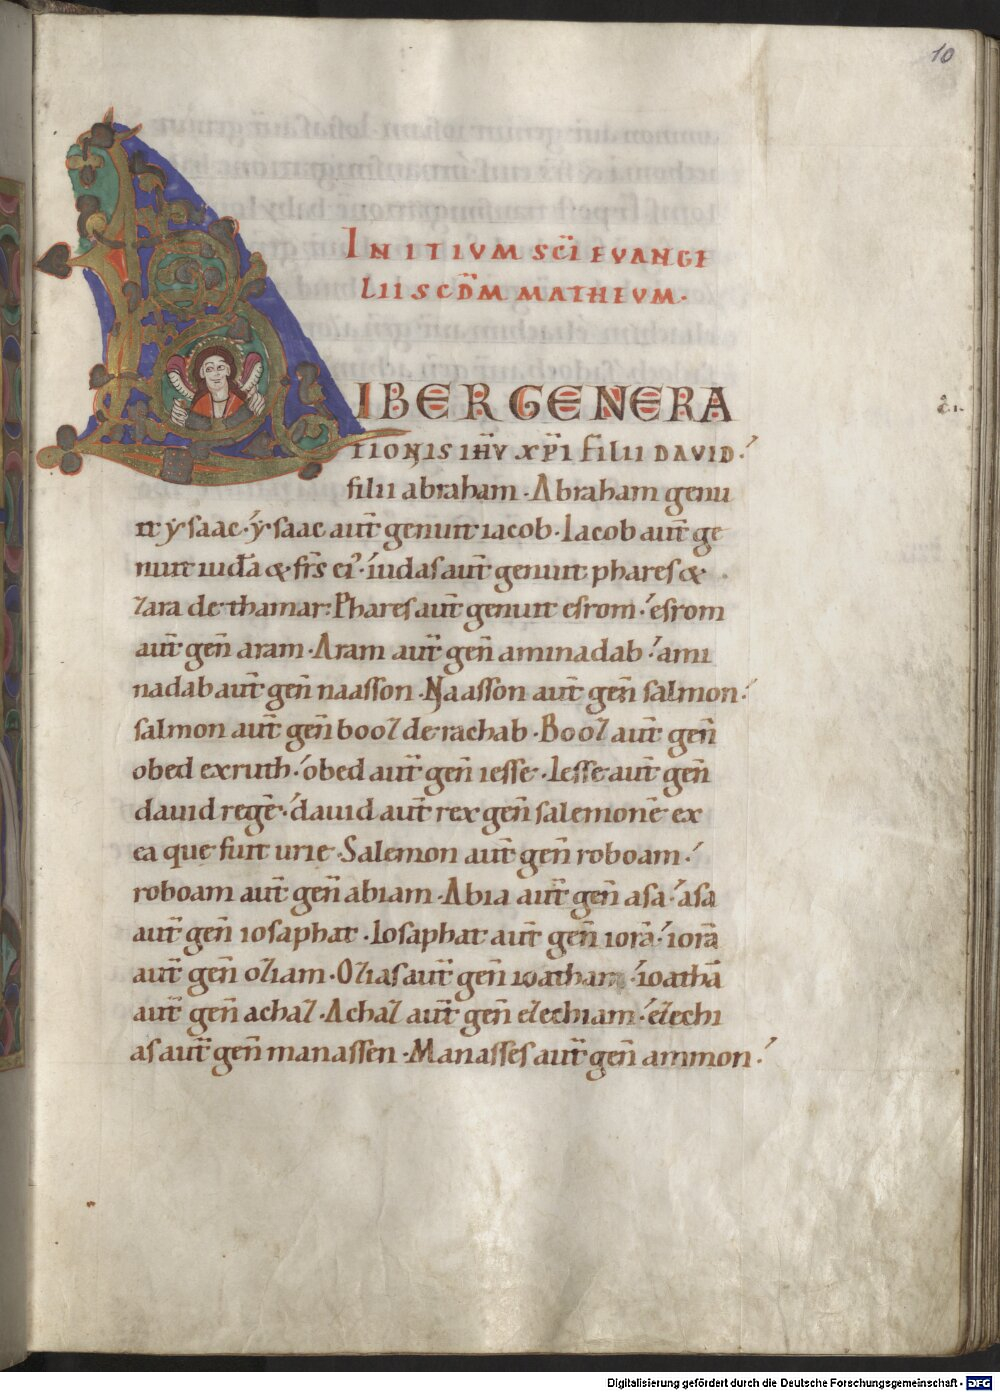 10
INITIVM SC̅I EVANGE
LII SCD̅M MATHEVM·
LIBER GENERA
c̅ı.
TIONIS IH̅V XP̅I FILII DAVID·
filii abraham · Abraham genu
it ẏsaac · ẏsaac aut̅ genuit iacob · Iacob aut̅ ge
nuit iuda̅ & fr̅s ei᾽ · iudas aut̅ genuit phares &
zara de thamar· Phares aut̅ genuit esrom · esrom
aut̅ gen̅ aram · Aram aut̅ gen̅ aminadab · ami
nadab aut̅ gen̅ naasson · Naasson aut̅ gen̅ salmon·
salmon aut̅ gen̅ booz de rachab · Booz aut̅ gen̅
obed ex ruth · obed aut̅ gen̅ iesse · Iesse aut̅ gen̅
dauid rege̅ · dauid aut̅ rex gen̅ salemone̅ ex
ea que fuit urie · Salemon aut̅ gen̅ roboam ·
roboam aut̅ gen̅ abiam · Abia aut̅ gen̅ asa · asa
aut̅ gen̅ iosaphat · Iosaphat aut̅ gen̅ iora̅ · iora̅
aut̅ gen̅ oziam · Ozias aut̅ gen̅ ioatham · ioatha̅
aut̅ gen̅ achaz · Achaz aut̅ gen̅ ezechiam · ezechi
as aut̅ gen̅ manassen · Manasses aut̅ gen̅ ammon ·
Digitalisierung gefördert durch die Deutsche Forschungsgemeinschaft - DFG